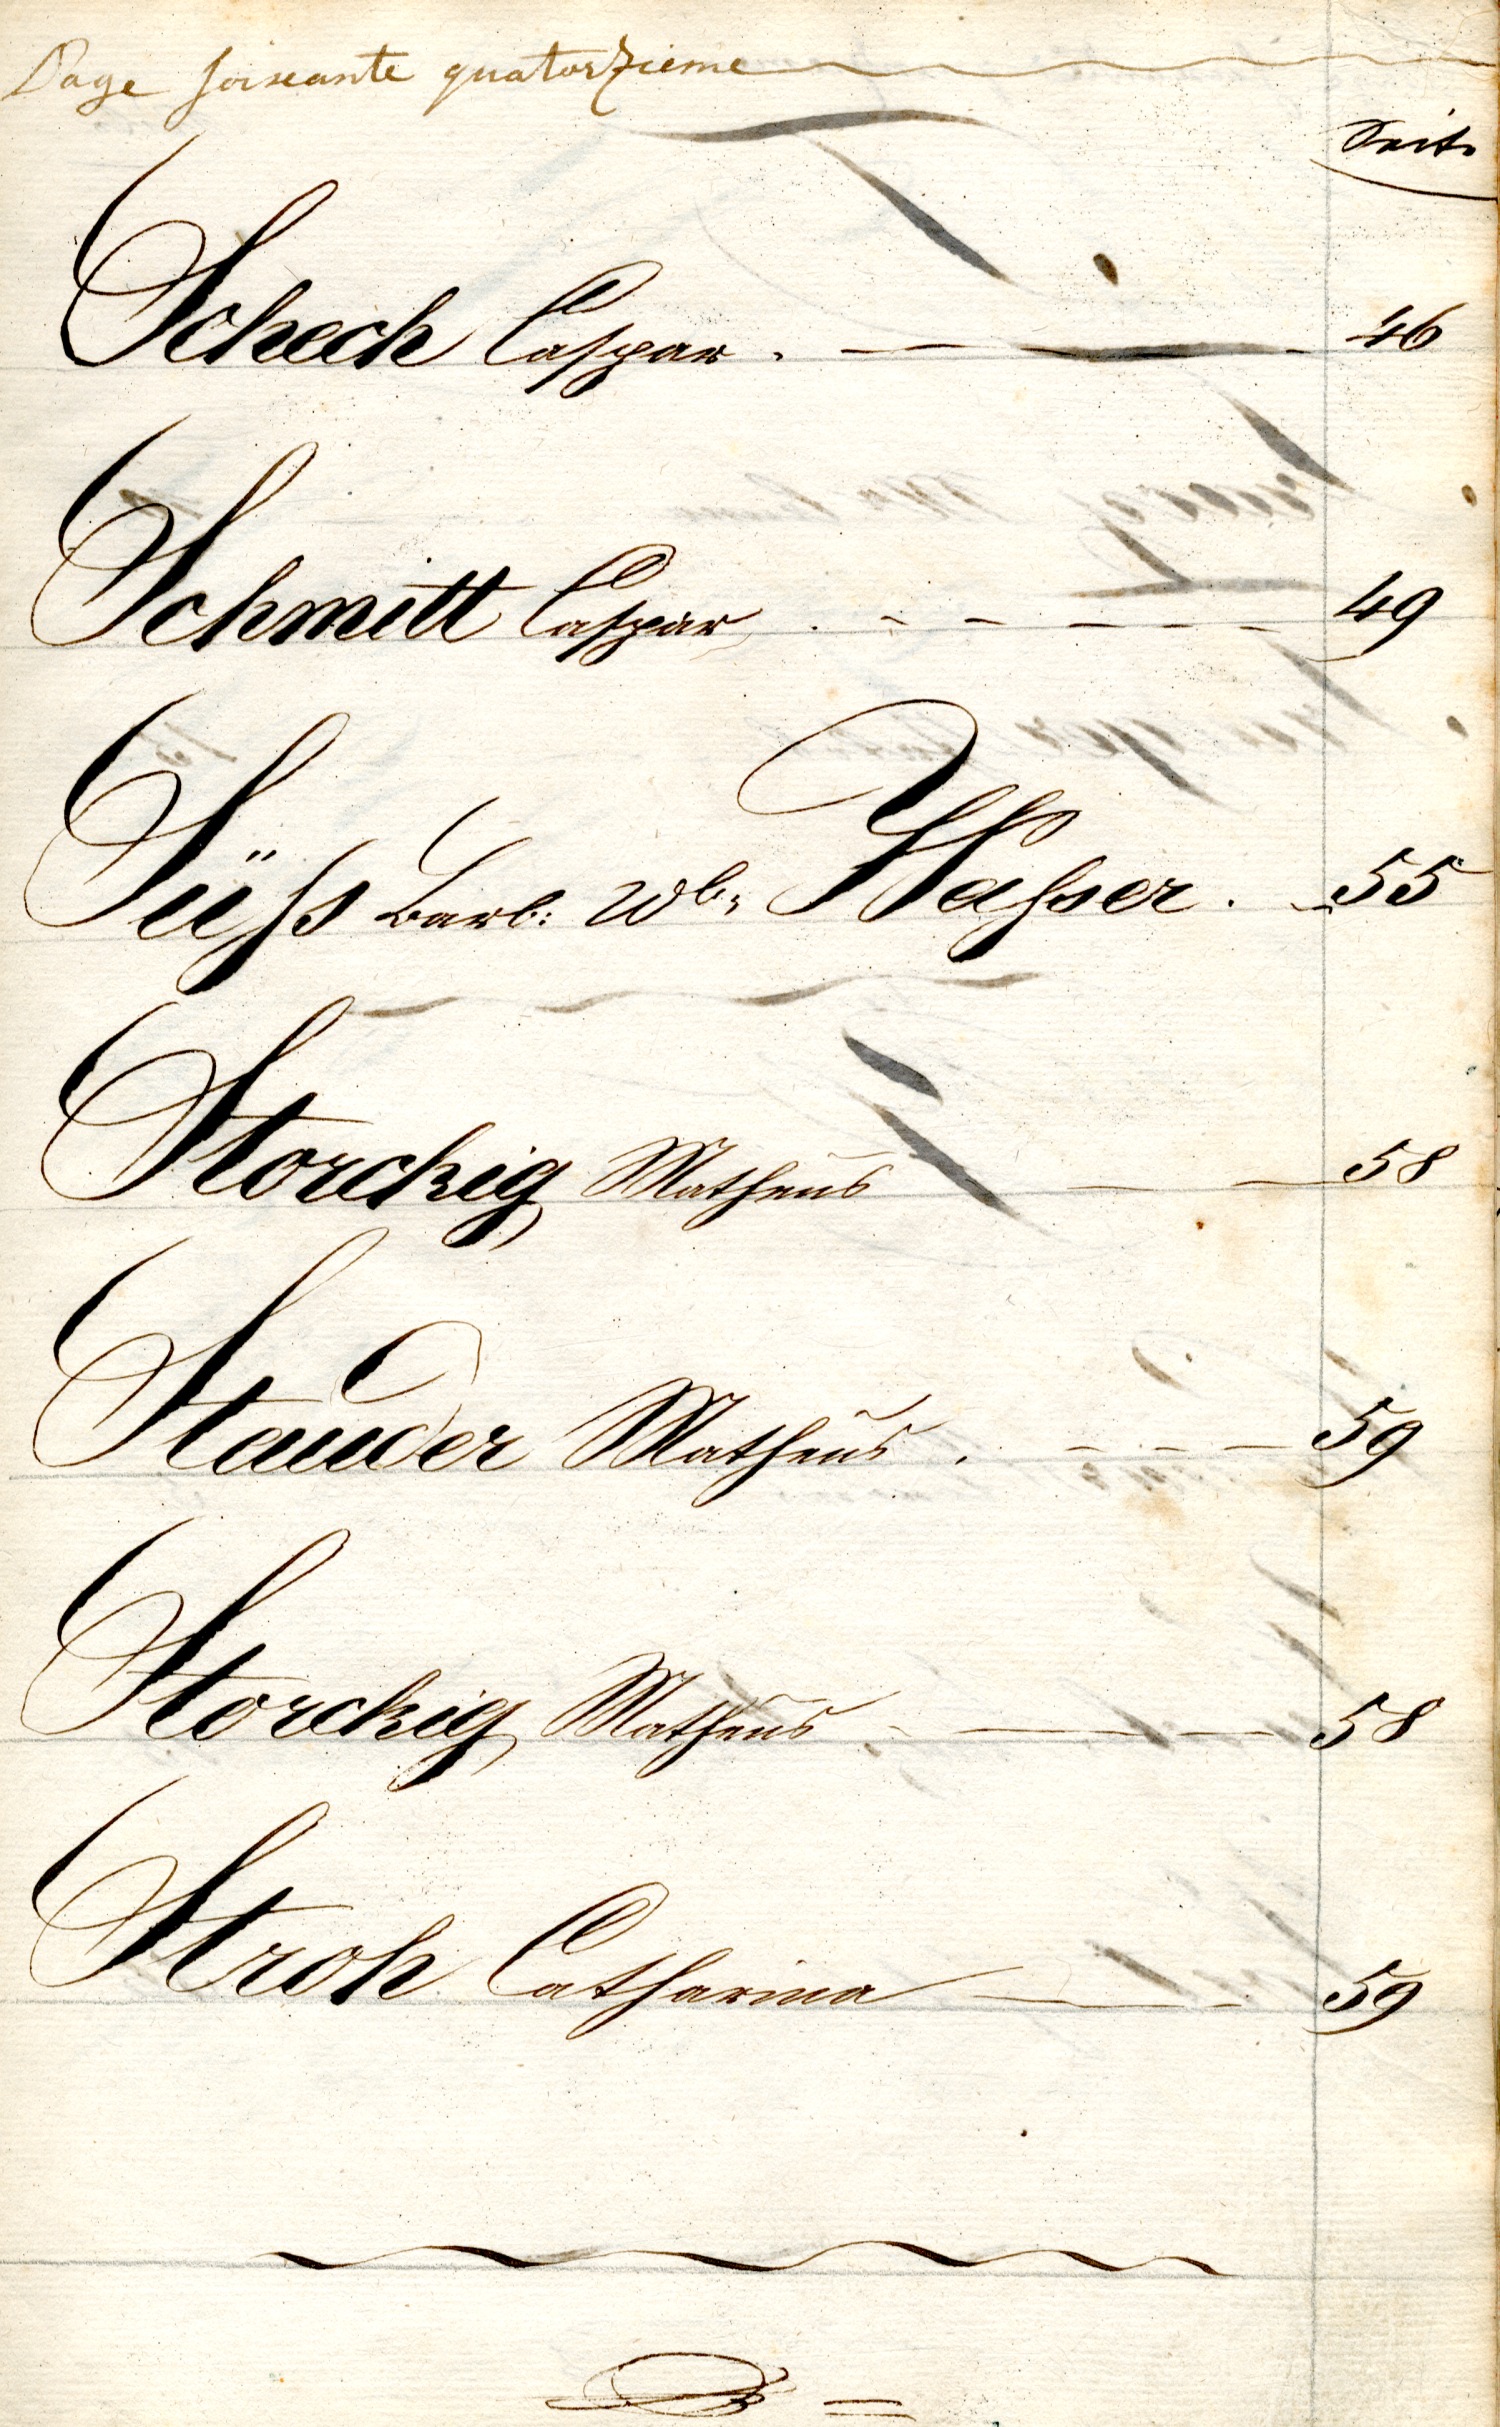 Page soixante quatorzieme
Seite
Schech Caspar. 46
Schmitt Caspar. 49
Süß Barb: Wb: Wasser. 55
Storckig Matheus 58
Stauder Matheus. 59
Storckig Matheus 58
Stroh Catharina 59